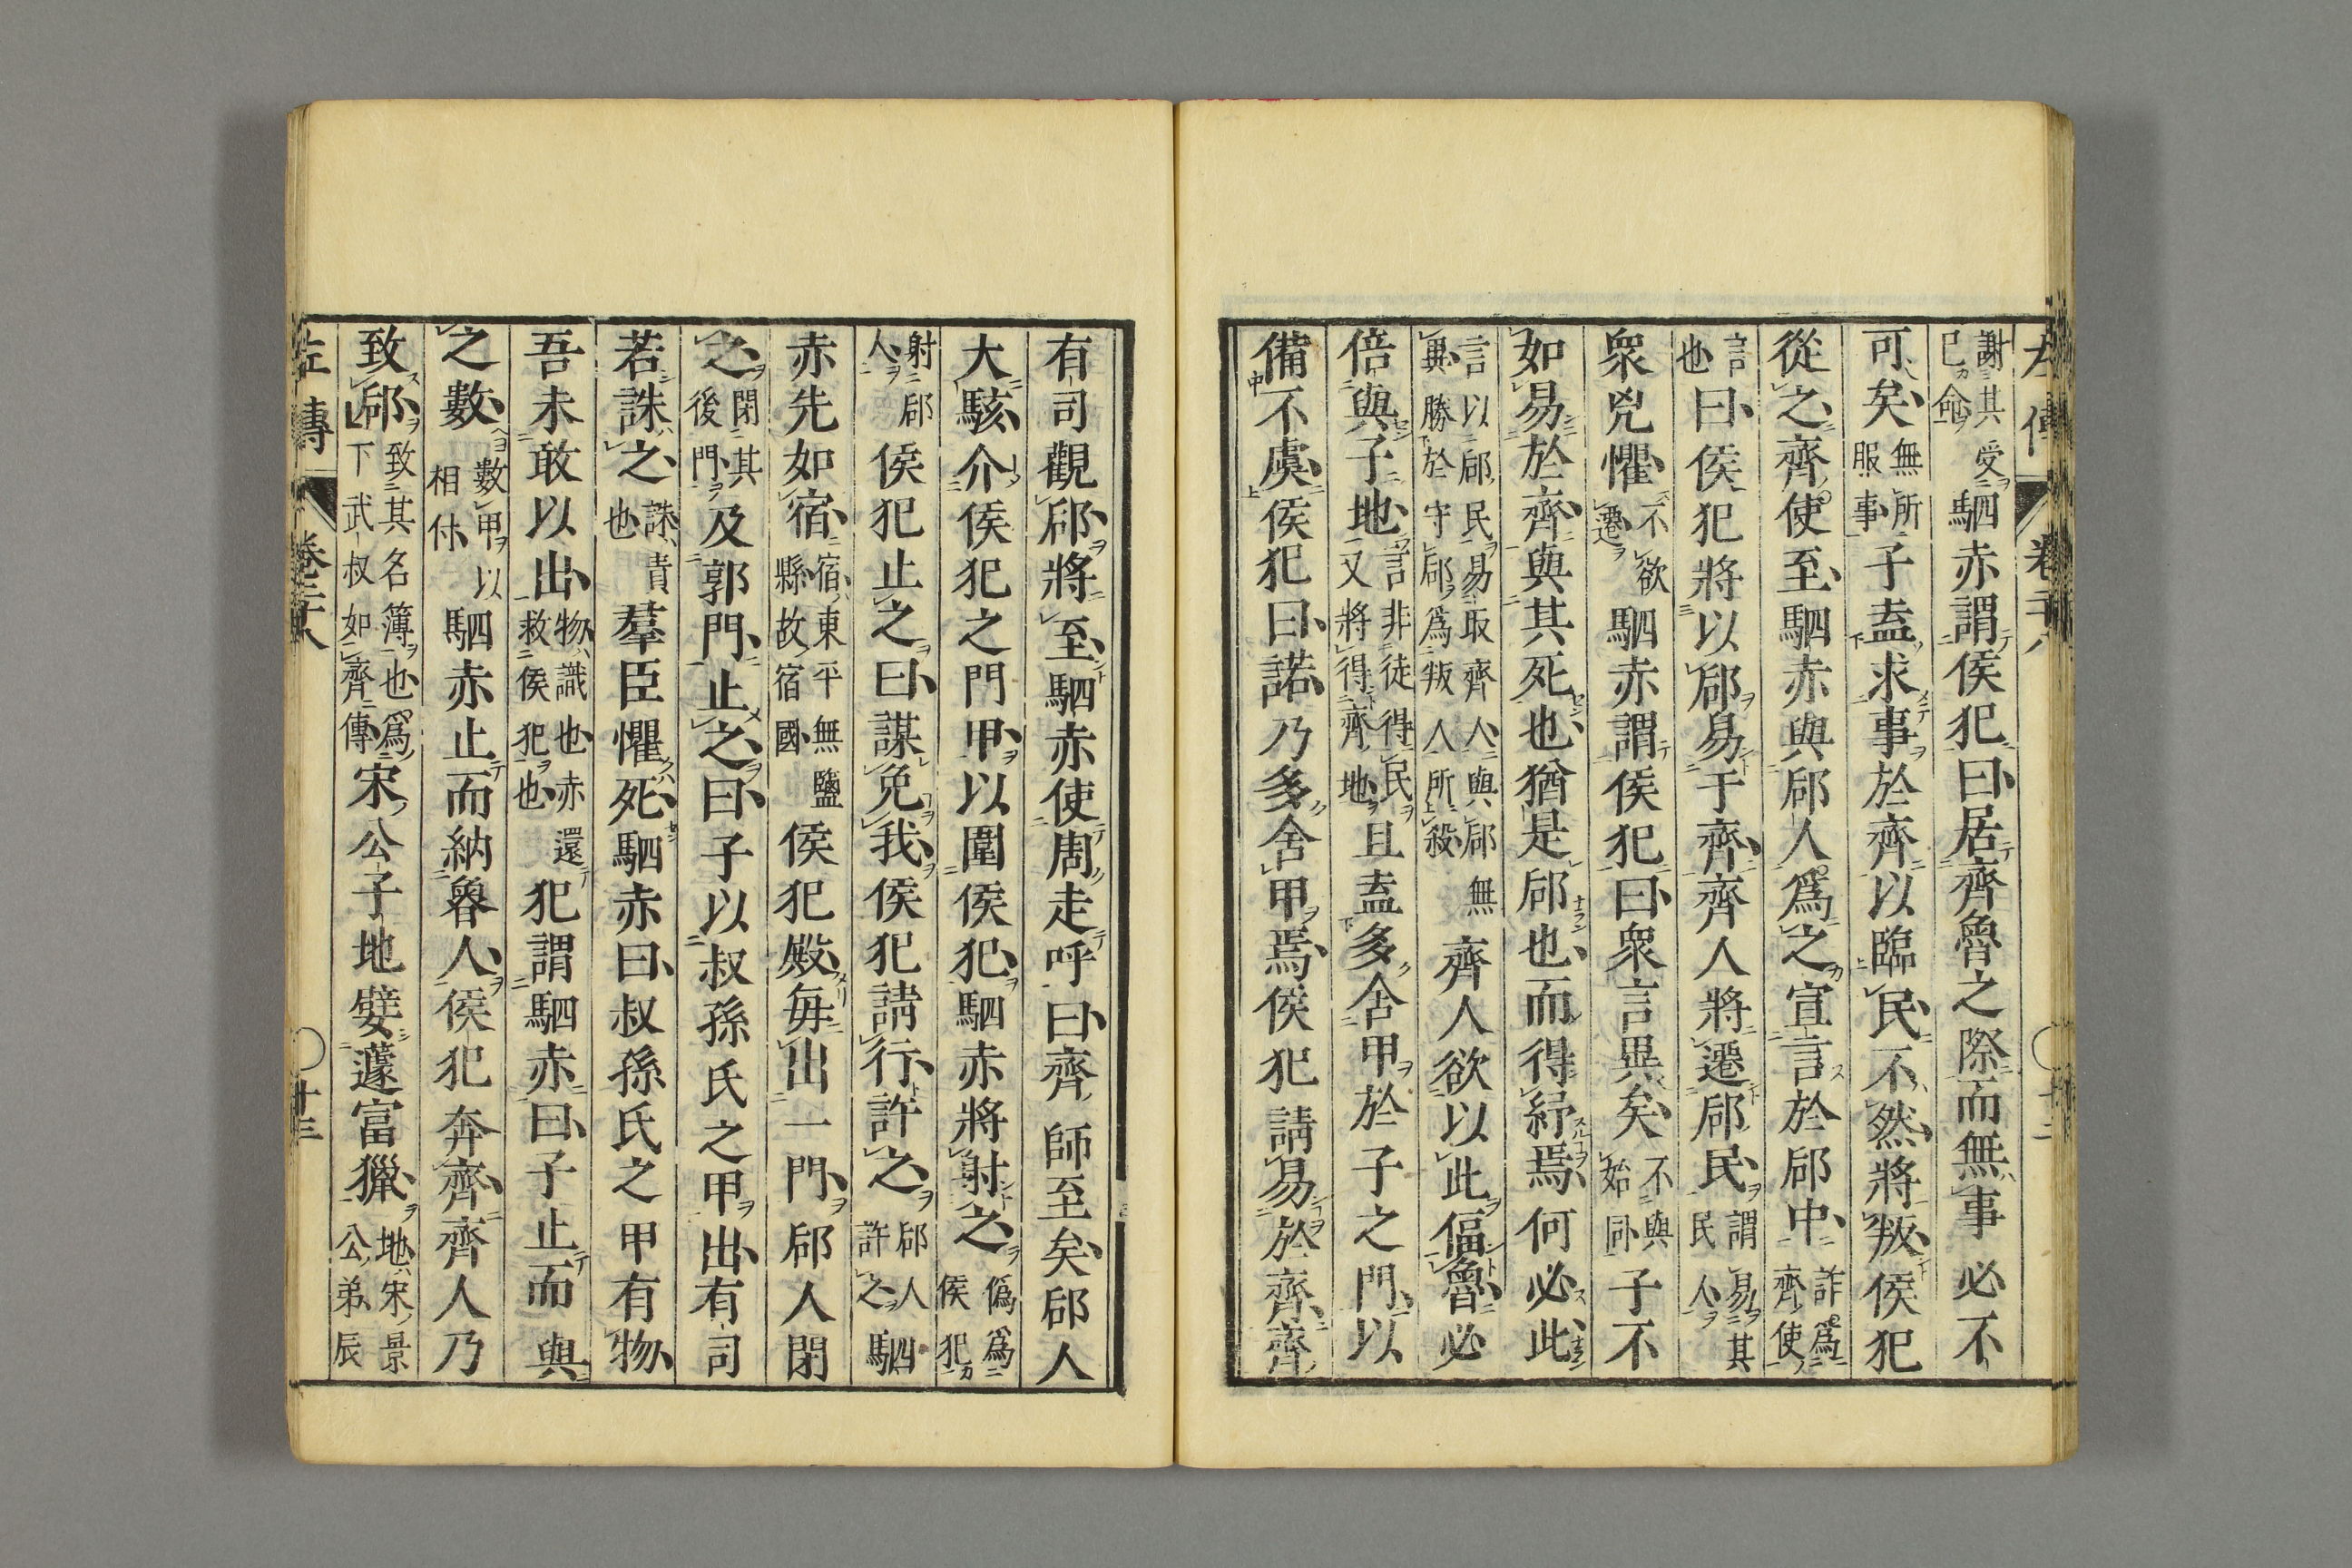 左傳 卷二十八 十二
謝其受己命駟赤謂侯犯曰居齊魯之際而無事必不
可矣無所服事子盍求事於齊以臨民不然將叛侯犯
從之齊使至駟赤與郈人爲之宣言於郈中詐爲齊使
言也曰侯犯將以郈易于齊齊人將遷郈民謂易其民人
衆兇懼不欲遷駟赤謂侯犯曰衆言異矣不與始同子不
如易於齊與其死也猶是郈也而得紓焉何必此
言以郈民易取齊人與郈無異勝於守郈爲叛人所殺齊人欲以此偪魯必
倍與子地言非徒得民又將得齊地且盍多舍甲於子之門以
備不虞侯犯曰諾乃多舍甲焉侯犯請易於齊齊
有司觀郈將至駟赤使周走呼曰齊師至矣郈人
大駭介侯犯之門甲以圍侯犯駟赤將射之僞爲侯犯
射郈人侯犯止之曰謀免我侯犯請行許之郈人許之駟
赤先如宿宿東平無鹽縣故宿國侯犯殿每出一門郈人閉
之閉其後門及郭門止之曰子以叔孫氏之甲出有司
若誅之誅責也羣臣懼死駟赤曰叔孫氏之甲有物
吾未敢以出物識也赤還救侯犯也犯謂駟赤曰子止而與
之數數甲以相付駟赤止而納魯人侯犯奔齊齊人乃
致郈致其名簿也爲下武叔如齊傳宋公子地嬖蘧富獵地宋景公弟辰
左傳 卷二十八 十三